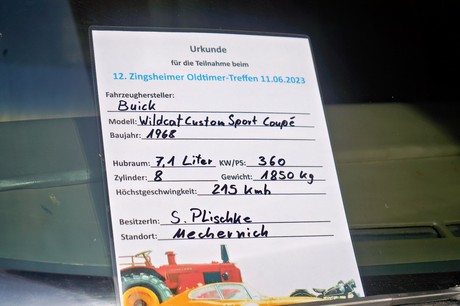 Urkunde
für die Teilnahme beim
12. Zingsheimer Oldtimer-Treffen 11.06.2023
Fahrzeughersteller:
Buick
Modell: Wildcat Custom Sport Coupé
Baujahr: 1968
Hubraum: 7,1 Liter KW/PS: 360
Zylinder: 8 Gewicht: 1850 kg
Höchstgeschwingkeit: 215 kmh
BesitzerIn: S. Plischke
Standort: Mechernich